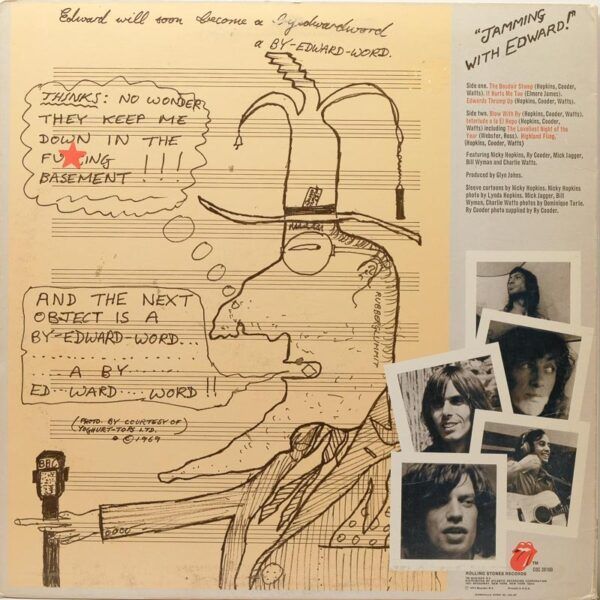 Edward will soon become a byedwardword
a BY-EDWARD-WORD.
THINKS: NO WONDER
THEY KEEP ME
DOWN IN THE
FU★ING !!!
BASEMENT!!!
AND THE NEXT
OBJECT IS A
BY-EDWARD-WORD...
. . . . . A BY . . . .
ED...WARD....WORD!!
(PHOTO. BY COURTESY OF)
YOGHURT-TOPS LTD.
© 1969
RUBBERSCHMITT
"JAMMING
WITH EDWARD!"
Side one. The Boudoir Stomp (Hopkins, Cooder,
Watts). It Hurts Me Too (Elmore James).
Edwards Thrump Up (Hopkins, Cooder, Watts).
Side two. Blow With Ry (Hopkins, Cooder, Watts).
Interlude a la El Hopo (Hopkins, Cooder,
Watts) including The Loveliest Night of the
Year (Webster, Ross). Highland Fling,
(Hopkins, Cooder, Watts)
Featuring Nicky Hopkins, Ry Cooder, Mick Jagger,
Bill Wyman and Charlie Watts.
Produced by Glyn Johns.
Sleeve cartoons by Nicky Hopkins. Nicky Hopkins
photo by Lynda Hopkins. Mick Jagger, Bill
Wyman, Charlie Watts photos by Dominique Tarle.
Ry Cooder photo supplied by Ry Cooder.
TM
COC 39100
ROLLING STONES RECORDS